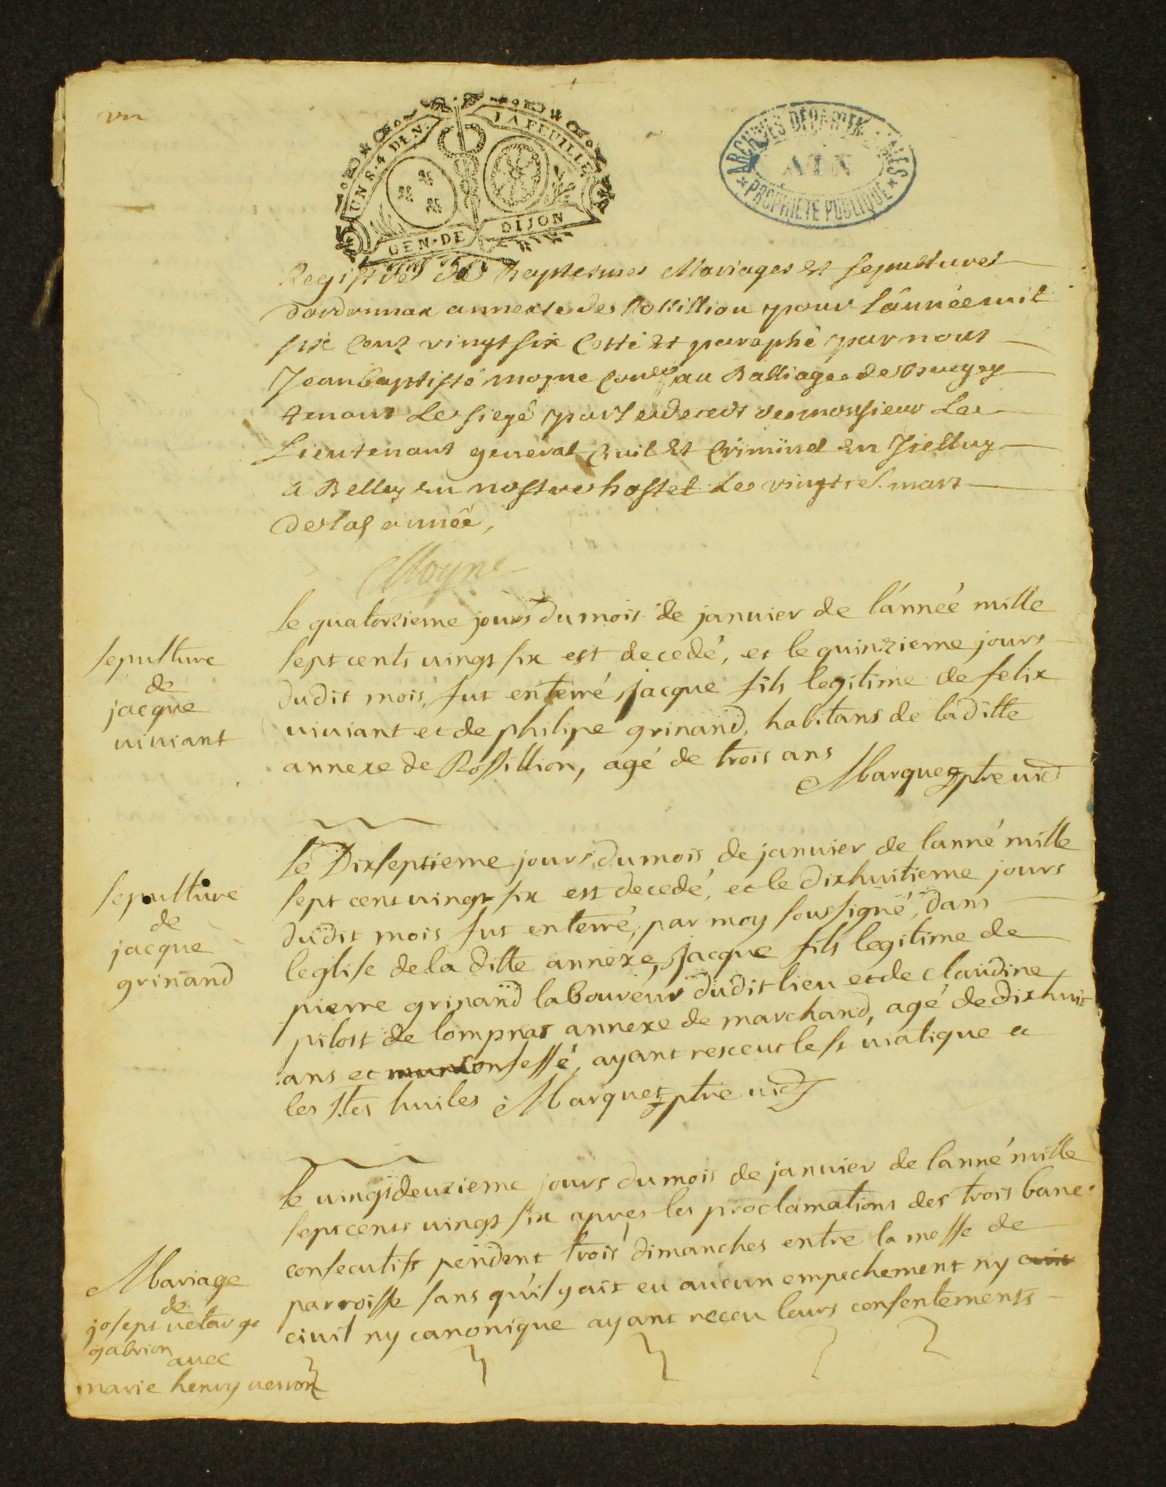 vn
UN S. 4 DEN. LA FEUILLE
GEN. DE DIJON
ARCHIVES DEPARTEMENTALES
AIN
PROPRIETE PUBLIQUE
Registre de Baptesmes Mariages et sepultures
dordonnax annexe de Rossillion pour l'année mil
sept cent vingt six Cotté et paraphé par nous
Jean baptiste moyne au Balliage de Bugey
tenant le siege par de monsieur Le
Lieutenant general Civil et Criminel en
a Belley en nostre hostel Le vingt mars
de année,
Moyne
le quatorzieme jours du mois de janvier de l'année mille
sept cents vingt six est decedé, et le quinzieme jours
dudit mois, fut enterré, jacque fils legitime de felix
viviant et de philipe grinand, habitans de laditte
annexe de Rossillion, agé de trois ans
Marquet ptre vic
sepulture
de
jacque
viviant
le Dixseptieme jours du mois de janvier de lanné mille
sept cent vingt six est decedé, et le dixhuitieme jours
dudit mois fut enterré, par moy soussigné, dans
leglise de la ditte annexe, jacque fils legitime de
pierre grinand laboureur dudit lieu et de claudine
pilost de lompnas annexe de marchand, agé de dixhuit
ans et confessé, ayant resceut le st viatique et
les stes huiles Marquet ptre vic
sepulture
de
jacque
grinand
le vingtdeuxieme jours du mois de janvier de lanné mille
sept cents vingt six apres les proclamations des trois banc
consecutifs pendent trois dimanches entre la messe de
parroisse sans qu'il y ait eu aucun empechement ny
civil ny canonique ayant receu leurs consentements
Mariage
de
josept
gabrion
avec
marie henry